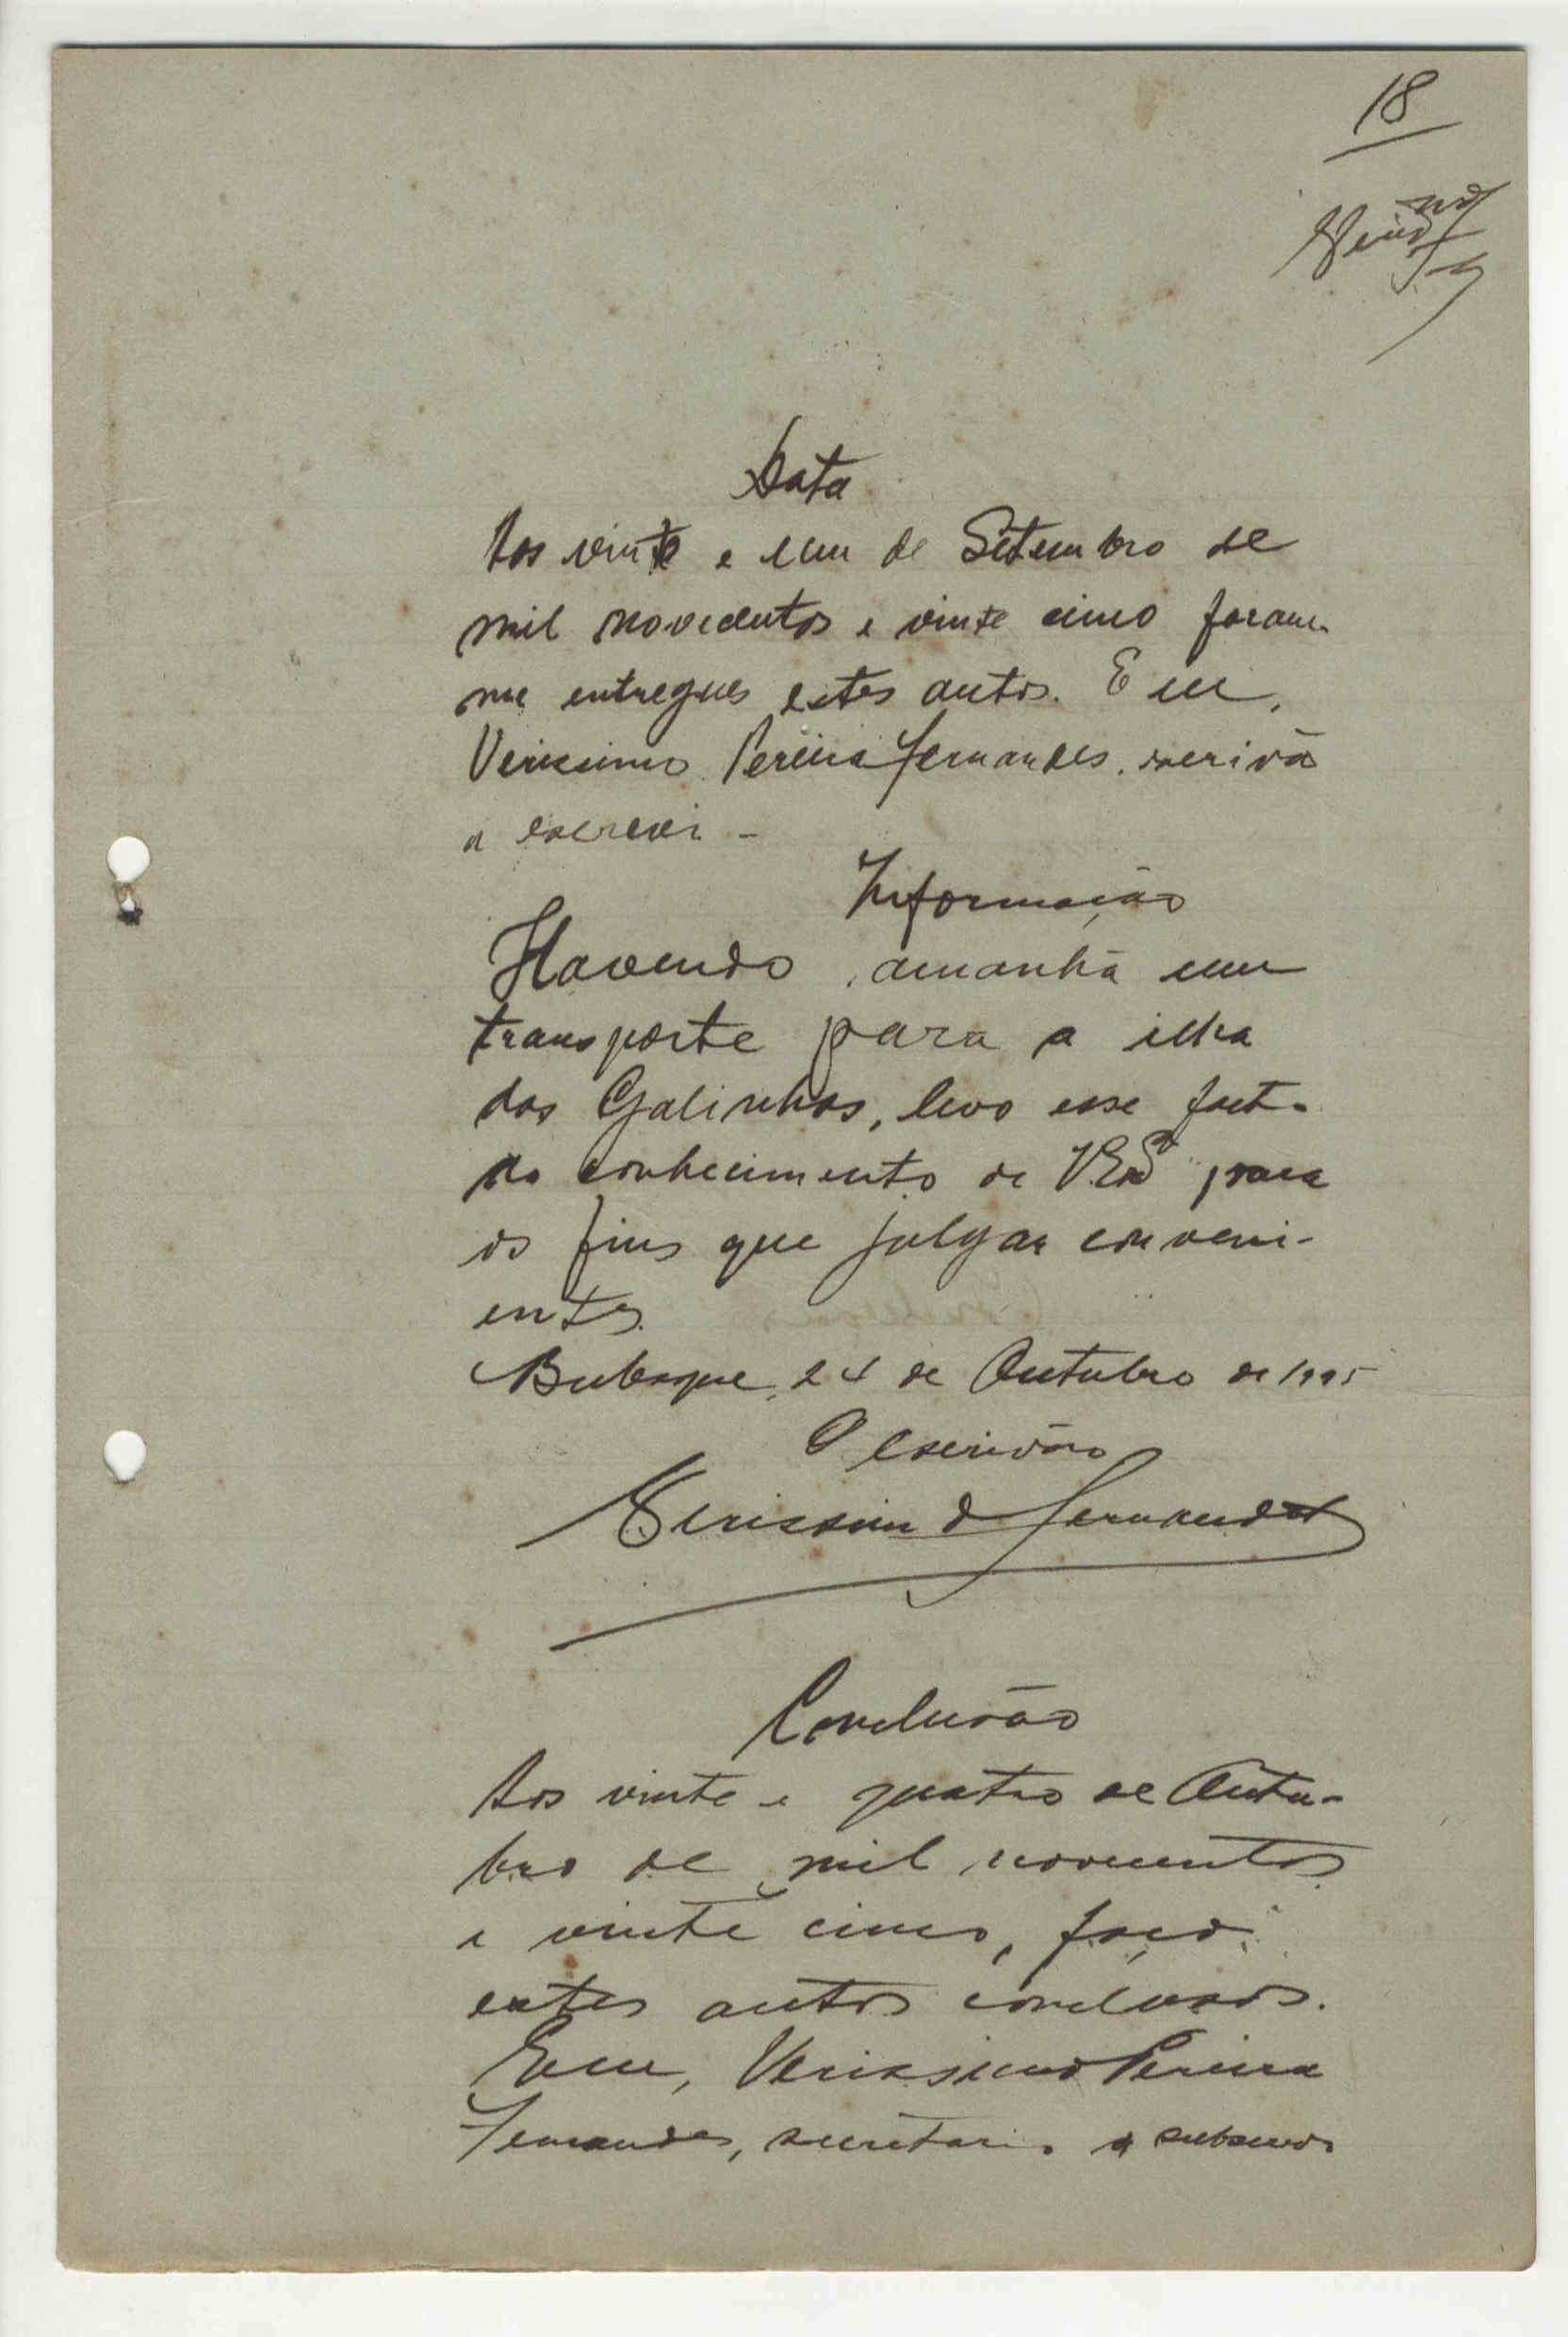 18
Data
Aos vinte e um de Setembro de
mil novecentos e vinte cinco foram
me entregues estes autos. E eu,
Verissimo Pereira Fernandes, escrivã
o escrevi -
Informação
Havendo amanhã um
transporte para a ilha
das Galinhas, levo esse facto
ao conhecimento de V. Exª para
os fins que julgar conveni-
entes.
Bubaque, 24 de Outubro de 1925
O Escrivão
Verissimo Fernandes
Conclusão
Aos vinte e quatro de Outu-
bro de mil novecentos
e vinte cinco, faço
estes autos conclusos.
E eu, Verissimo Pereira
Fernandes, secretario o subscrevo